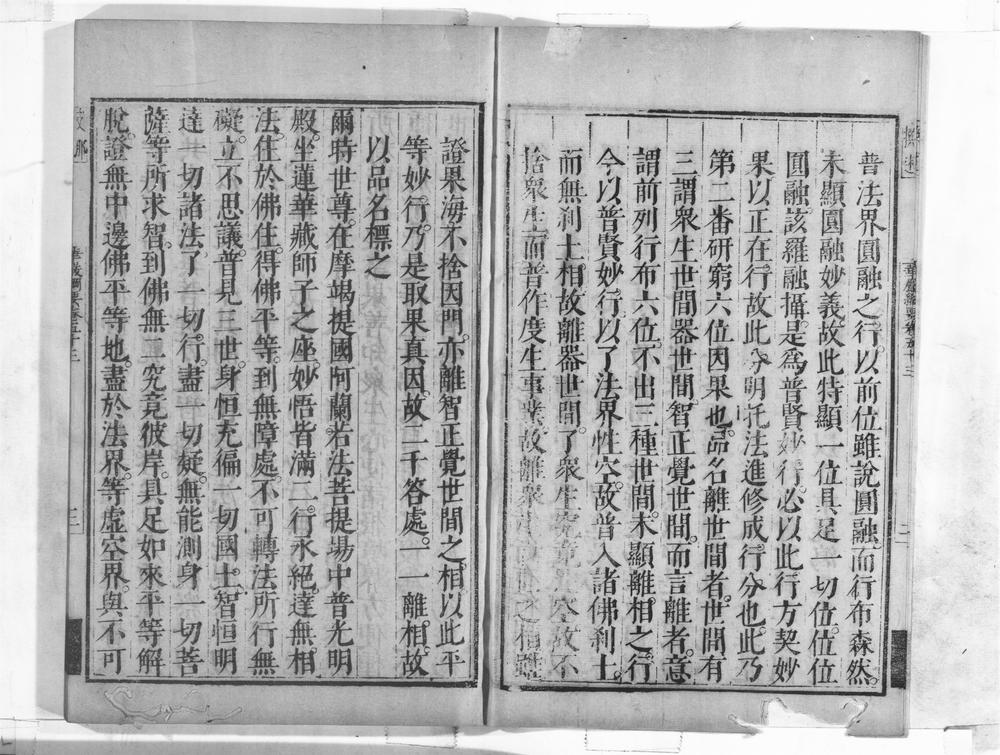 普法界圓融之行。以前位雖說圓融。而行布森然。
未顯圓融妙義。故此特顯一位具足一切位。位位
圓融。該羅融攝。是為普賢妙行。必以此行方契妙
果。以正在行。故此分明托法進修成行分也。此乃
第二番研窮六位因果也。品名離世間者。世間有
三。謂眾生世間。器世間。智正覺世間。而言離者。意
謂前列行布六位。不出三種世間。未顯離相之行。
今以普賢妙行。以了法界性空。故普入諸佛剎土。
而無剎土相。故離器世間。了眾生究竟空。故不
捨眾生。而普作度生事業。故離眾之相。雖
證果海不捨因門。亦離智正覺世間之相。以此平
等妙行。乃是取果真因。故二千答處。一一離相。故
以品名標之
爾時世尊。在摩竭提國阿蘭若法菩提場中普光明
殿。坐蓮華藏師子之座。妙悟皆滿。二行永絕。達無相
法。住於佛住。得佛平等。到無障處。不可轉法。所行無
礙。立不思議。普見三世。身恒充徧一切國土。智恒明
達一切諸法。了一切行。盡一切疑。無能測身。一切菩
薩等所求智。到佛無二究竟彼岸。具足如來平等解
脫。證無中邊佛平等地。盡於法界。等虛空界。與不可
華嚴綱要卷五十三
二
華嚴綱要卷五十三
三